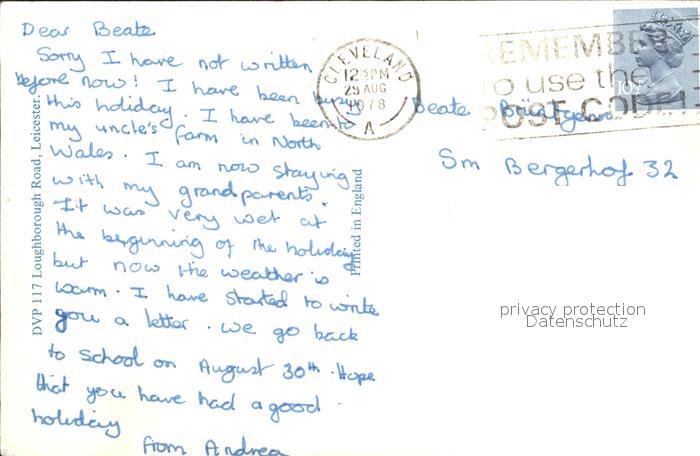 Dear Beate
Sorry I have not written
before now! I have been busy
this holiday. I have been to
my uncle's farm in North
Wales. I am now staying
with my grandparents.
It was very wet at
the beginning of the holiday
but now the weather is
warm. I have started to write
you a letter. We go back
to school on August 30th. Hope
that you have had a good
holiday
from Andrea
DVP 117 Loughborough Road, Leicester.
Printed in England
CLEVELAND
12:15PM
29 AUG
1978
A
REMEMBER
to use the
POST CODE
10½P
Beate
Sm Bergerhof 32
privacy protection
Datenschutz